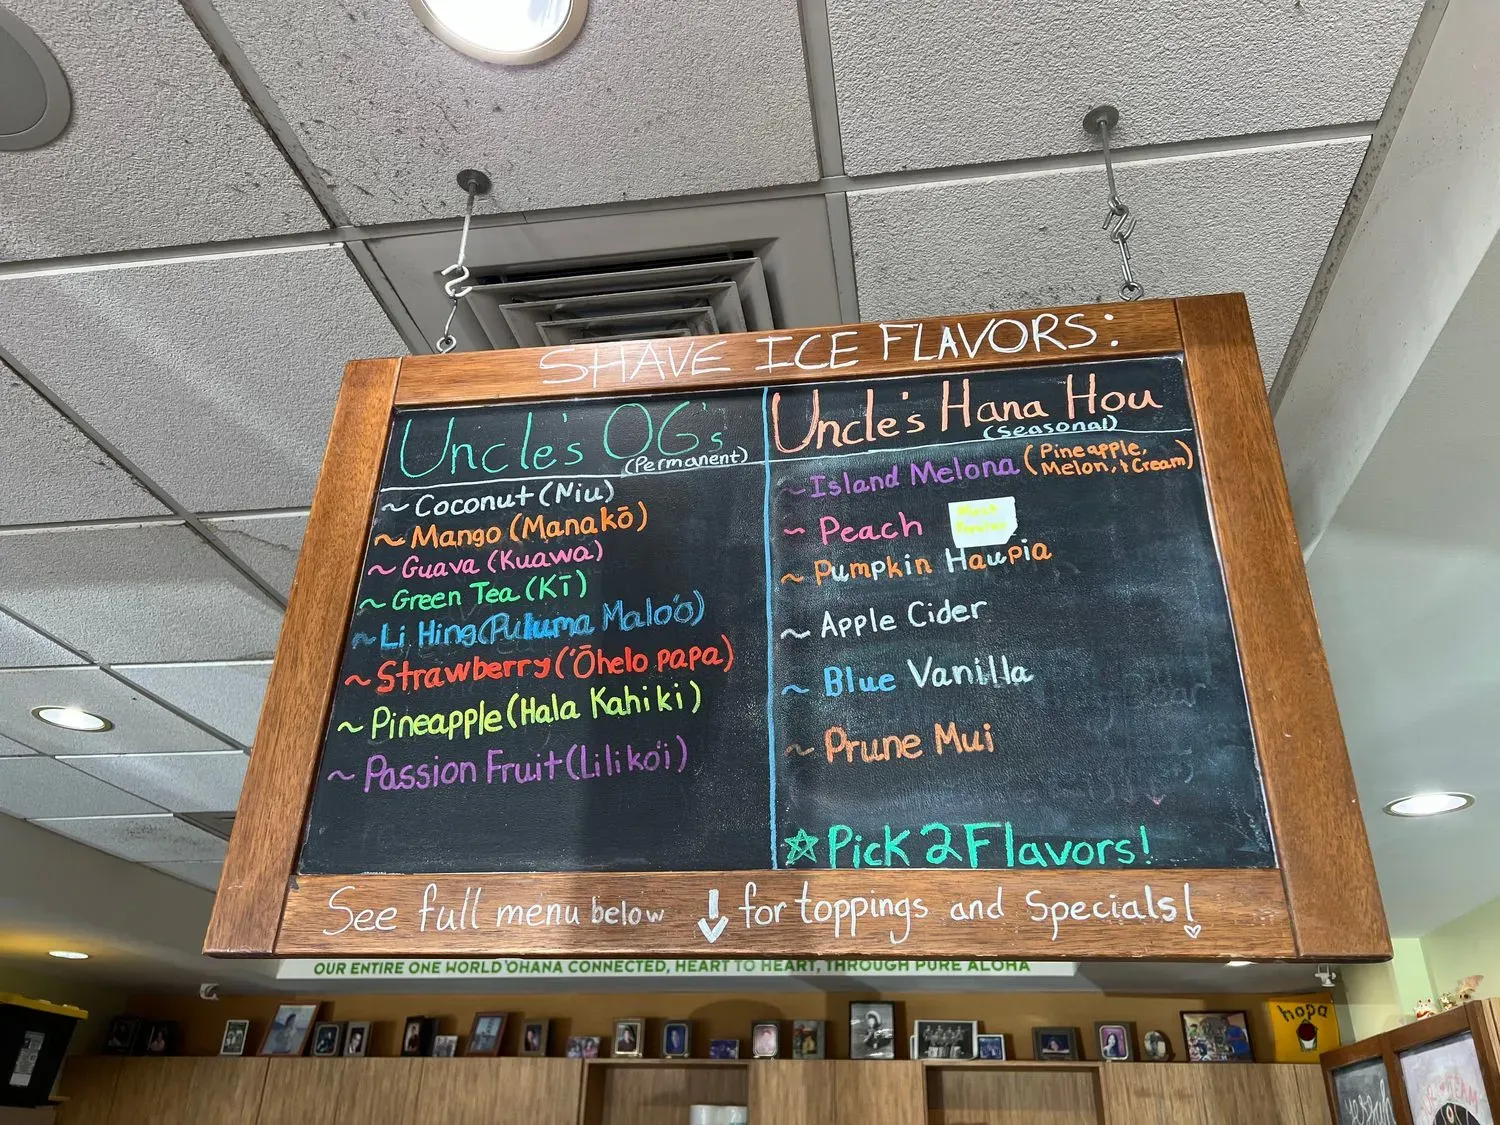 SHAVE ICE FLAVORS:
Uncle's OG's
(Permanent)
~ Coconut (Niu)
~ Mango (Manakō)
~ Guava (Kuawa)
~ Green Tea (Kī)
~ Li Hing (Puluma Malo'o)
~ Strawberry ('Ōhelo papa)
~ Pineapple (Hala Kahiki)
~ Passion Fruit (Liliko'i)
Uncle's Hana Hou
(Seasonal)
~ Island Melona (Pineapple,
Melon, + Cream)
~ Peach
~ Pumpkin Haupia
~ Apple Cider
~ Blue Vanilla
~ Prune Mui
☆ Pick 2 Flavors!
See full menu below ↓ for toppings and Specials!
OUR ENTIRE ONE WORLD 'OHANA CONNECTED, HEART TO HEART, THROUGH PURE ALOHA
hopa